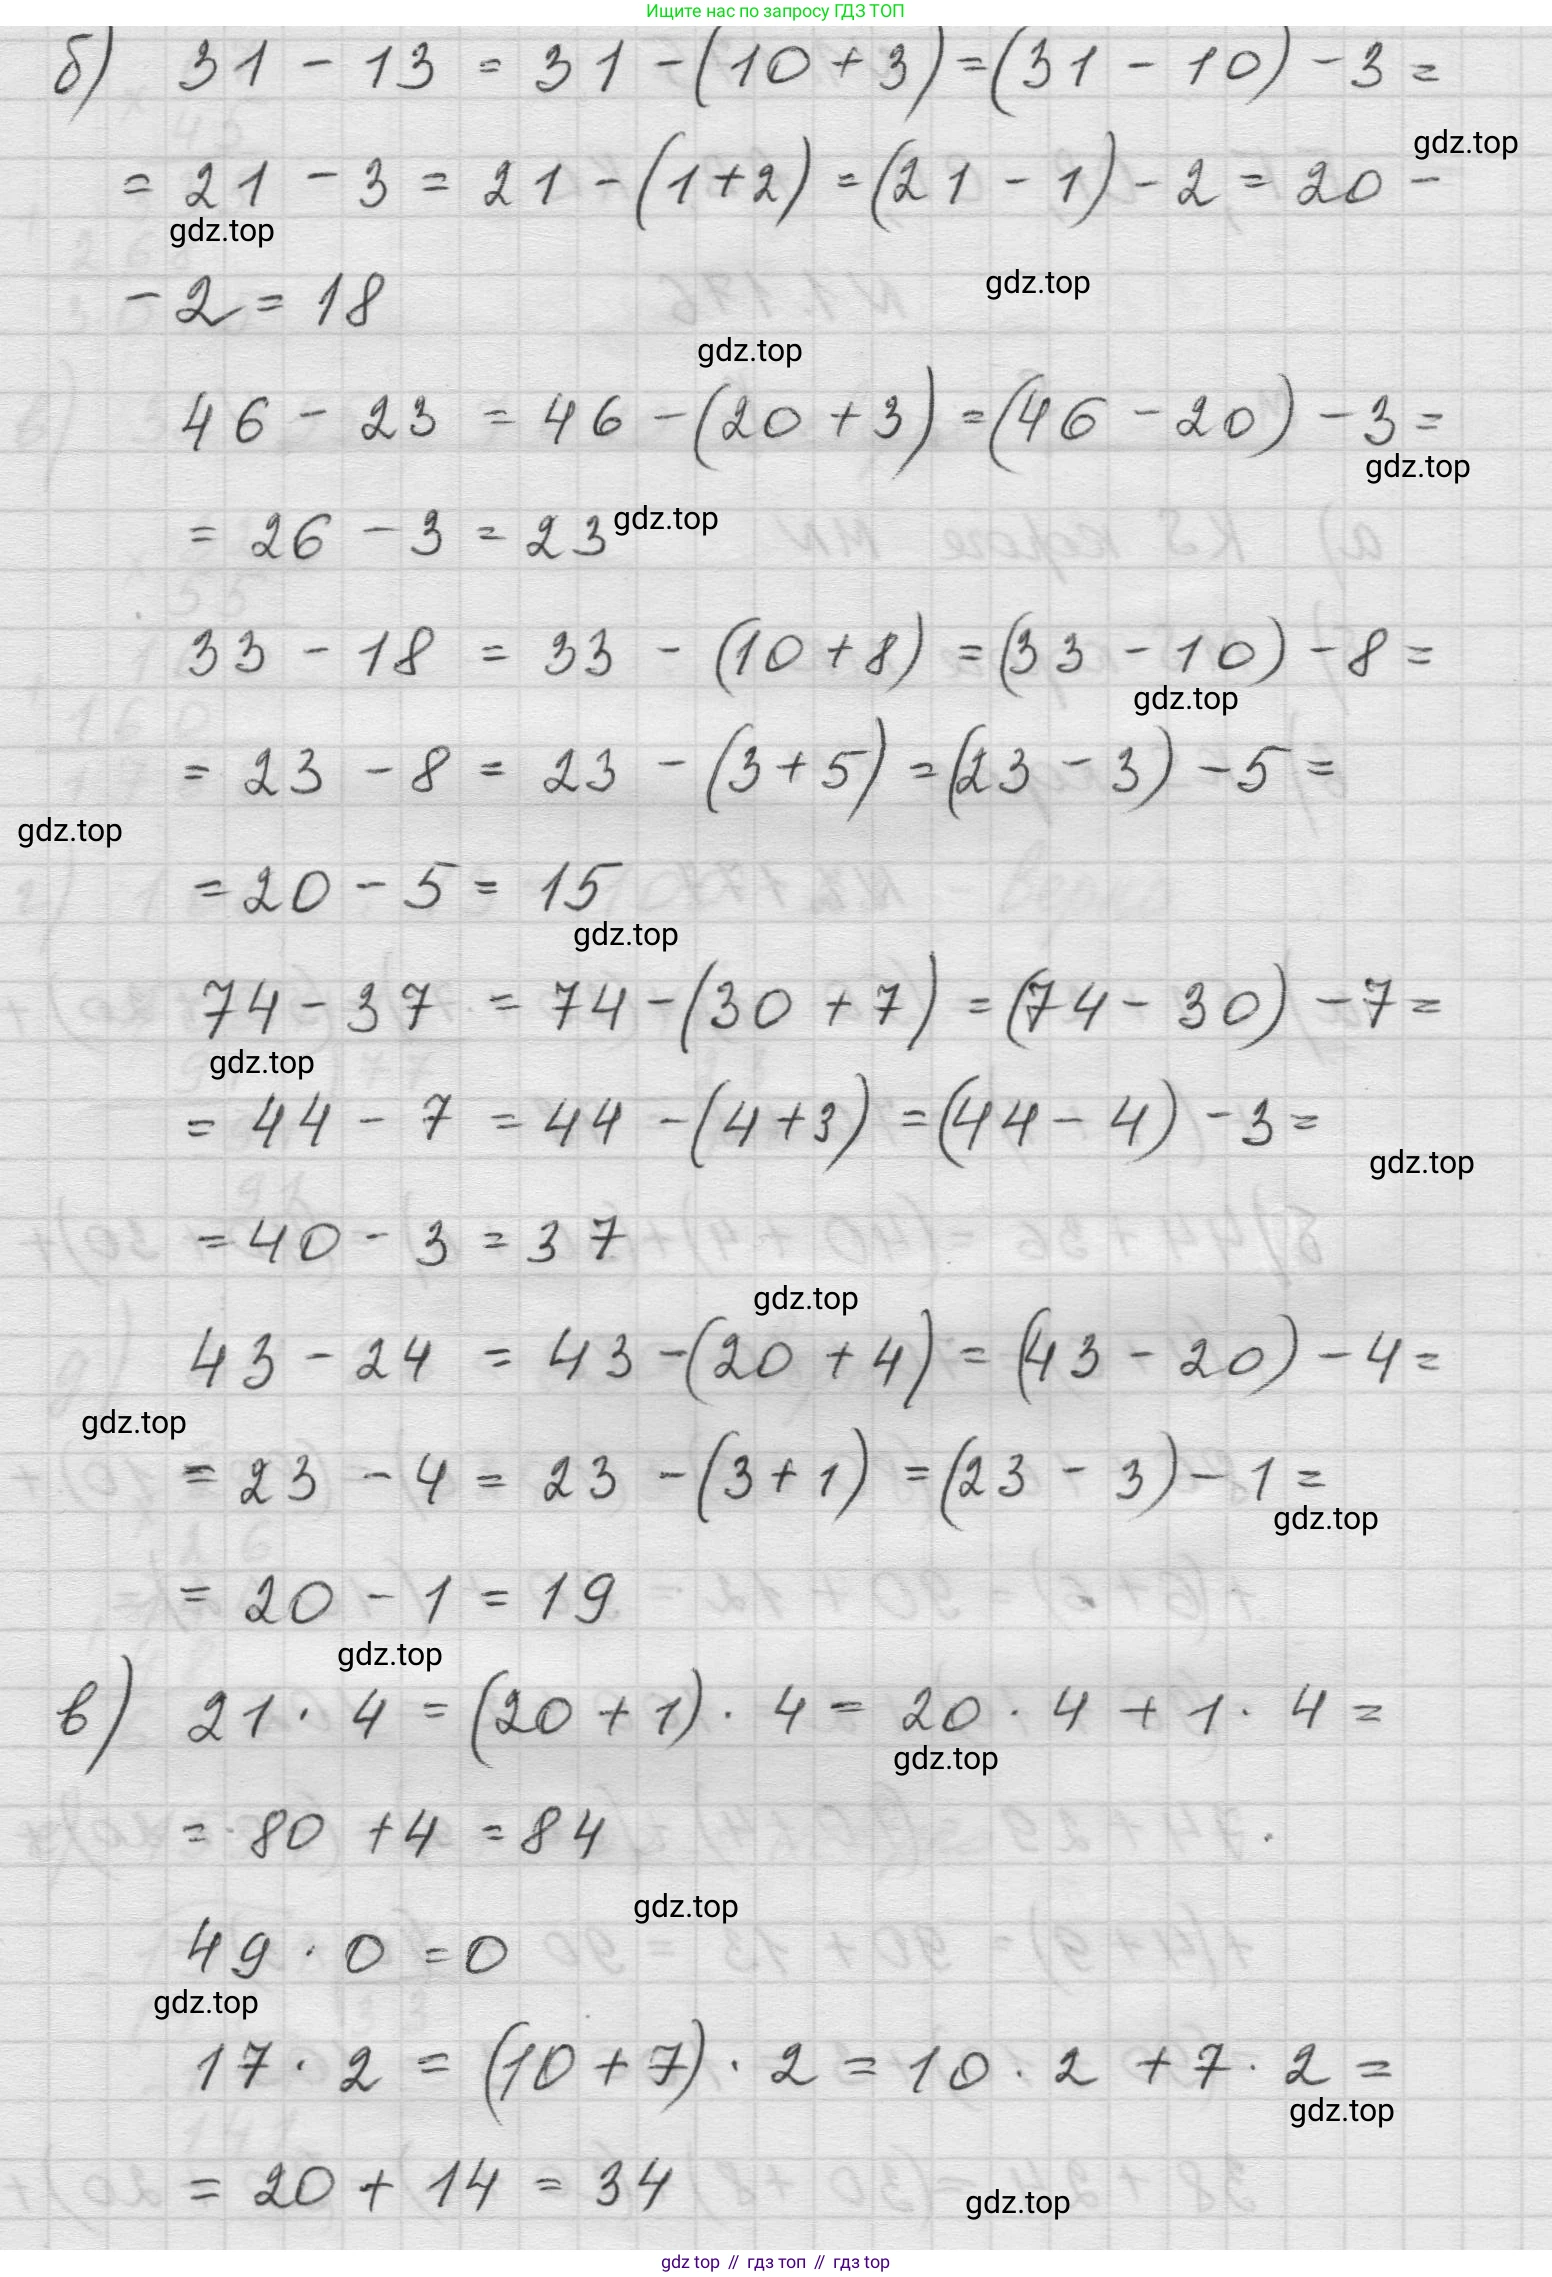 Ищите нас по запросу ГДЗ ТОП
б) 31 - 13 = 31 - (10 + 3) = (31 - 10) - 3 =
gdz.top
= 21 - 3 = 21 - (1 + 2) = (21 - 1) - 2 = 20 -
gdz.top
gdz.top
- 2 = 18
gdz.top
46 - 23 = 46 - (20 + 3) = (46 - 20) - 3 =
gdz.top
= 26 - 3 = 23
gdz.top
33 - 18 = 33 - (10 + 8) = (33 - 10) - 8 =
gdz.top
= 23 - 8 = 23 - (3 + 5) = (23 - 3) - 5 =
gdz.top
= 20 - 5 = 15
gdz.top
74 - 37 = 74 - (30 + 7) = (74 - 30) - 7 =
gdz.top
= 44 - 7 = 44 - (4 + 3) = (44 - 4) - 3 =
gdz.top
= 40 - 3 = 37
gdz.top
43 - 24 = 43 - (20 + 4) = (43 - 20) - 4 =
gdz.top
= 23 - 4 = 23 - (3 + 1) = (23 - 3) - 1 =
gdz.top
= 20 - 1 = 19
gdz.top
в) 21 · 4 = (20 + 1) · 4 = 20 · 4 + 1 · 4 =
gdz.top
= 80 + 4 = 84
gdz.top
49 · 0 = 0
gdz.top
17 · 2 = (10 + 7) · 2 = 10 · 2 + 7 · 2 =
gdz.top
= 20 + 14 = 34
gdz.top
gdz top // гдз топ // гдз top